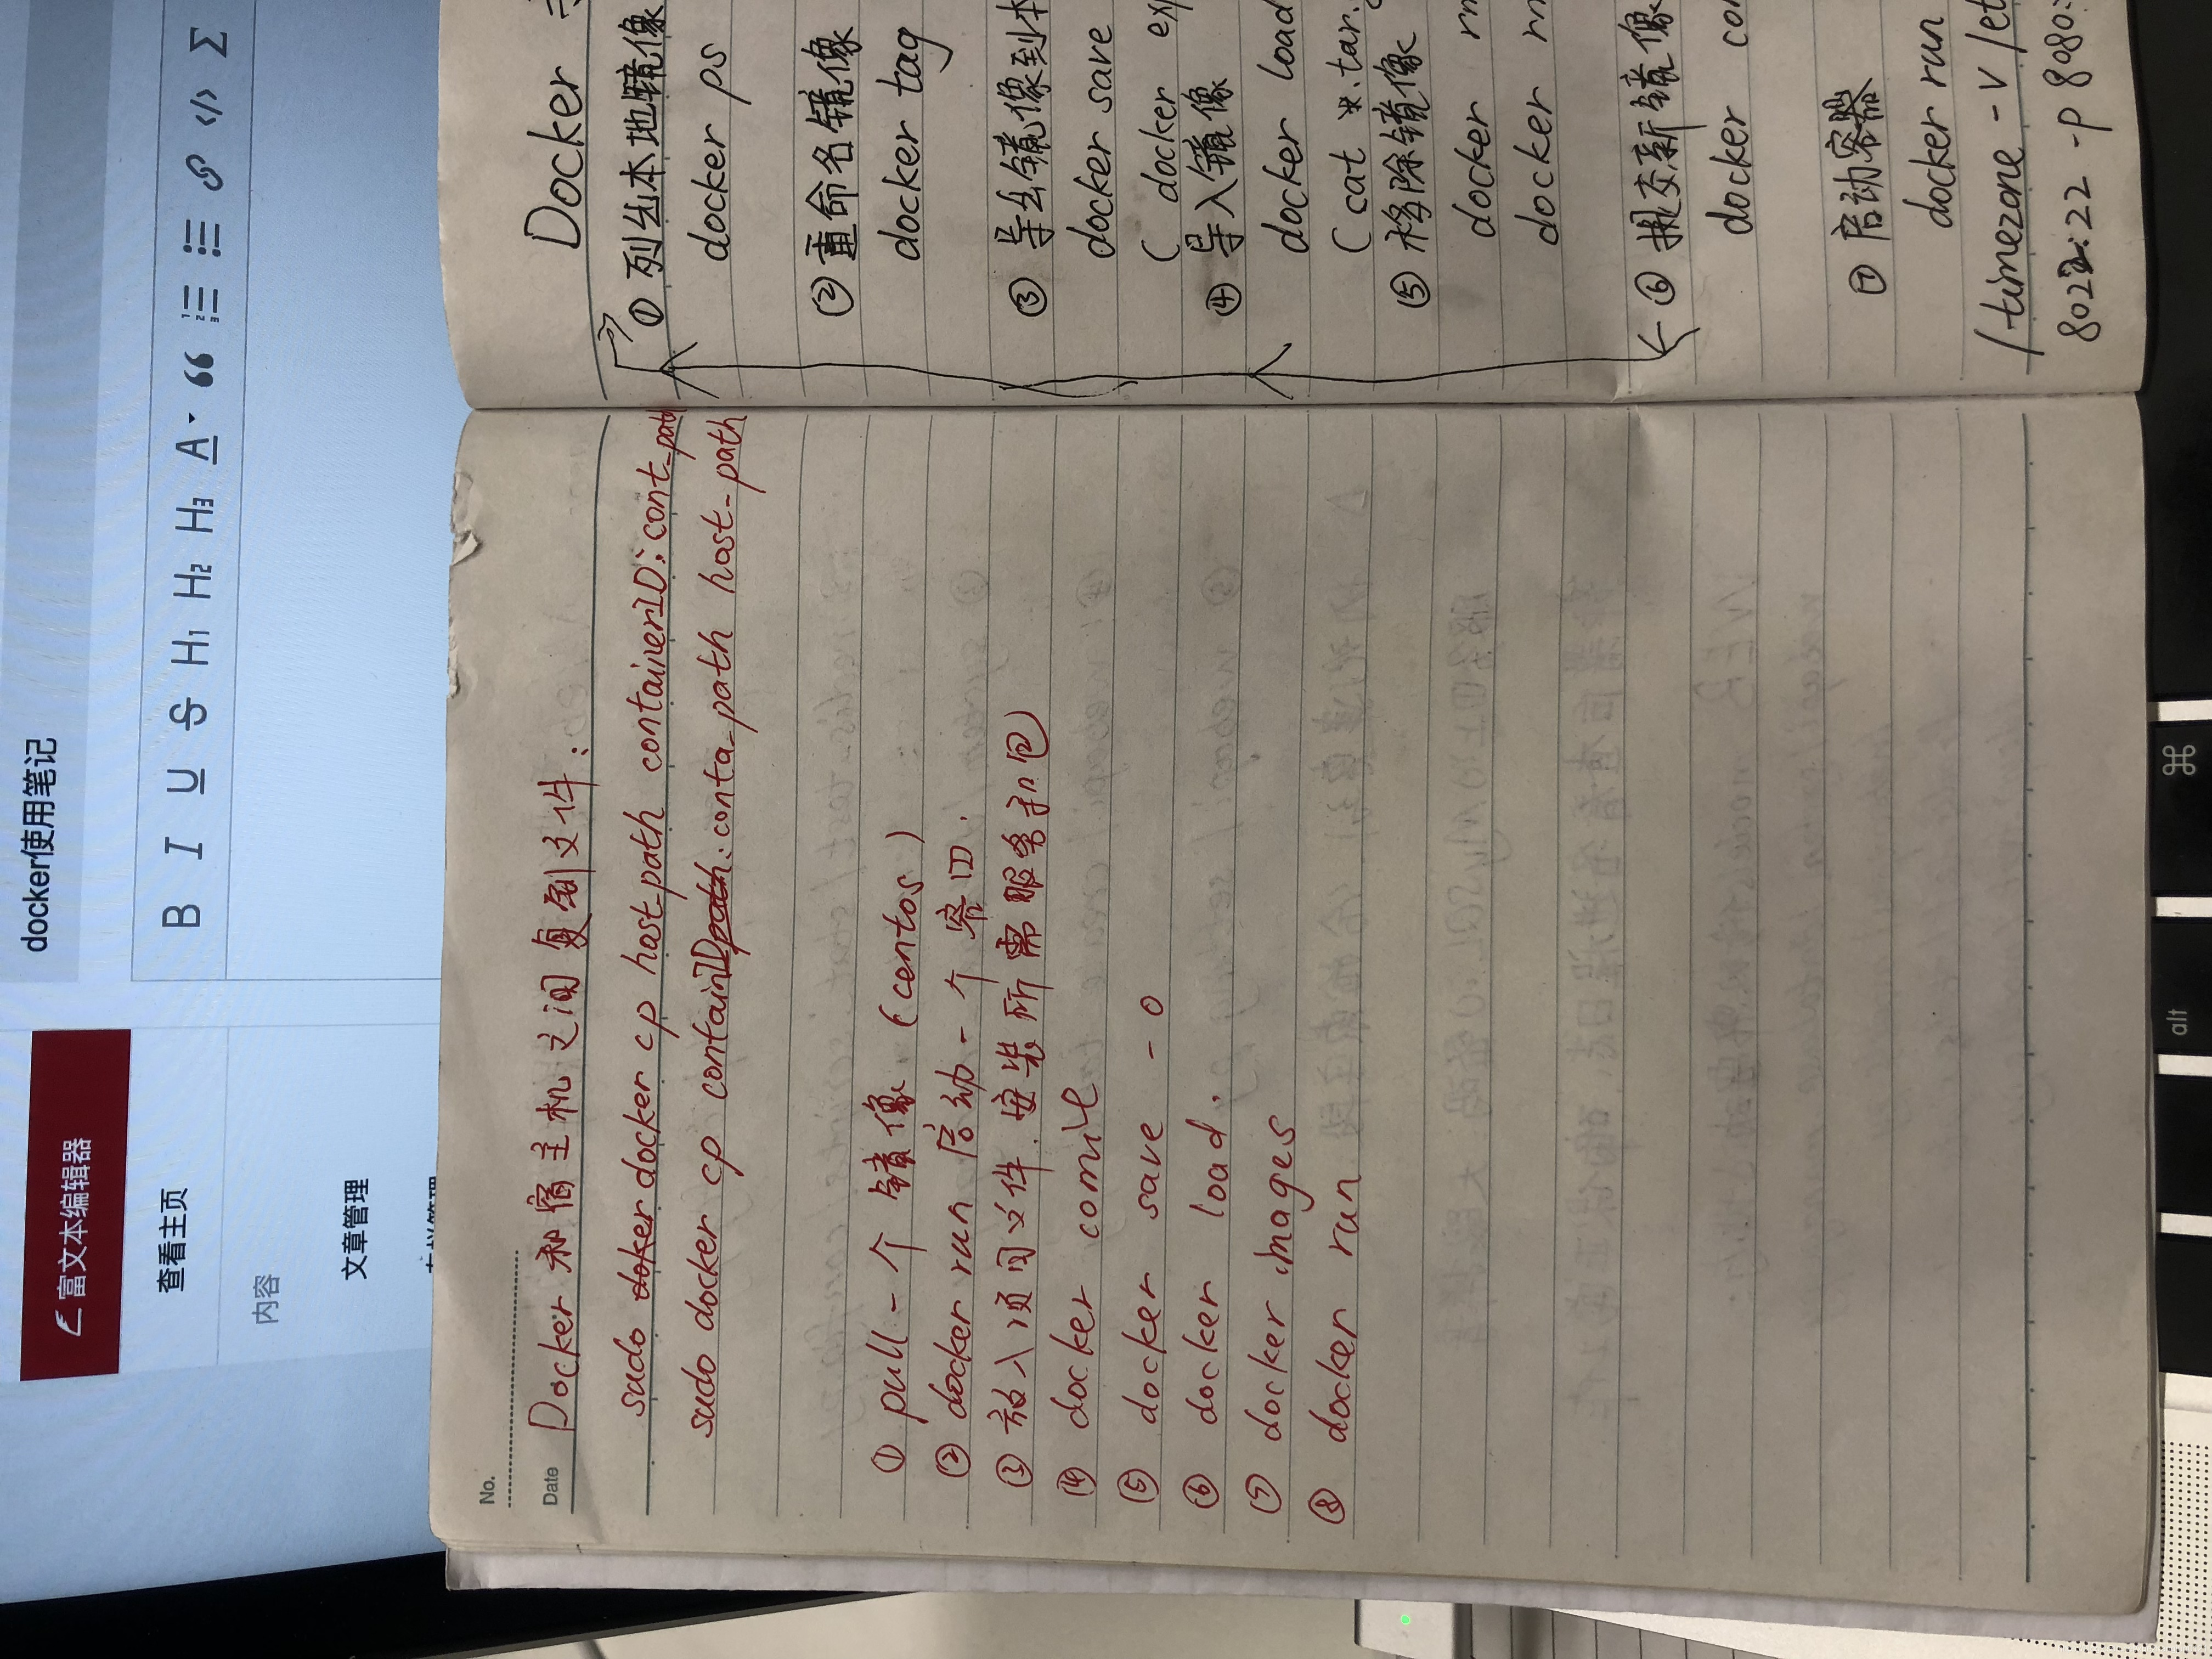 docker使用笔记
B I U S H1 H2 H3 A
富文本编辑器
查看主页
内容
文章管理
No.
Date
Docker 和宿主机之间复制文件:
sudo doker docker cp host_path containerID:cont_path
sudo docker cp containIDpath:conta_path host_path
① pull 一个镜像 (centos)
② docker run 启动一个窗口.
③ 放入项目文件.安装所需服务和包)
④ docker comit
⑤ docker save -o
⑥ docker load.
⑦ docker images
⑧ docker run
Docker
① 列出本地镜像
docker ps
② 重命名镜像
docker tag
③ 导出镜像到本
docker save
( docker exp
④ 导入镜像
docker load
( cat *.tar.
⑤ 移除镜像
docker rm
docker rm
⑥ 提交新镜像
docker con
⑦ 启动容器
docker run
/timezone -v /et
8022:22 -p 8080:
⌘
alt